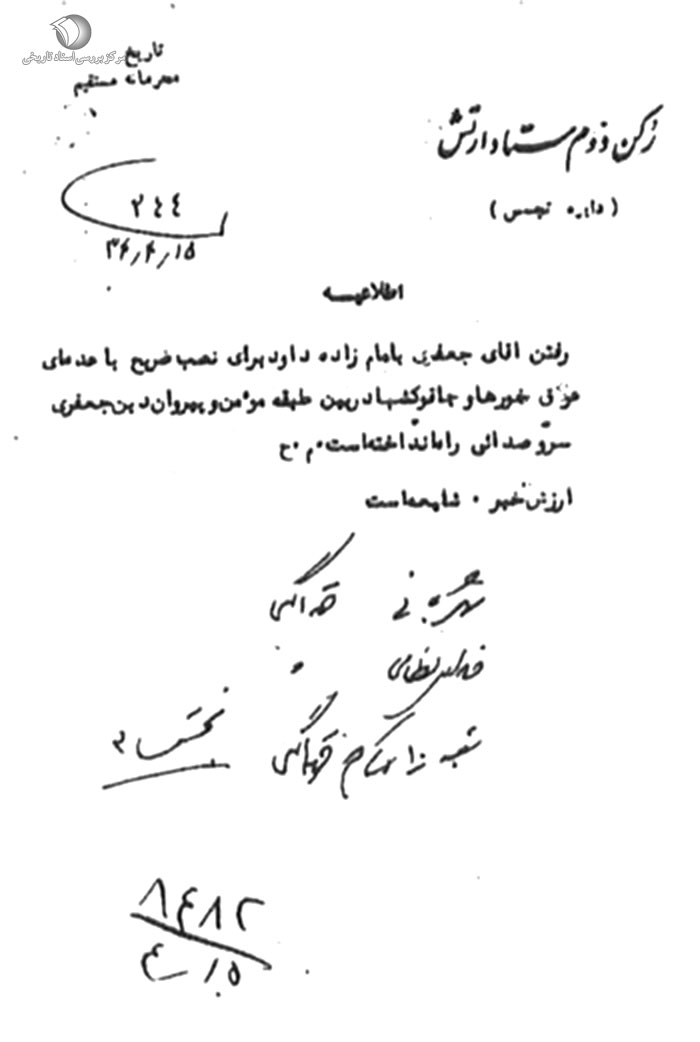 مرکز بررسی اسناد تاریخی
تاریخ
محرمانه مستقیم
رکن دوم ستاد ارتش
(دایره تجسس)
۲۴۴
۳۶٫۴٫۱۵
اطلاعیه
رفتن آقای جعفری بامام زاده داود برای نصب ضریح با عده‌ای
عرق خورها و چاقوکشها دربین طبقه مؤمن و پیروان دین جعفری
سر و صدائی راه انداخته‌است. م.ح
ارزش خبر . شایعه‌است
شهربانی
فرماندار نظامی
شعبه
تجسس ۳
۸۴۸۲
۴/۱۵